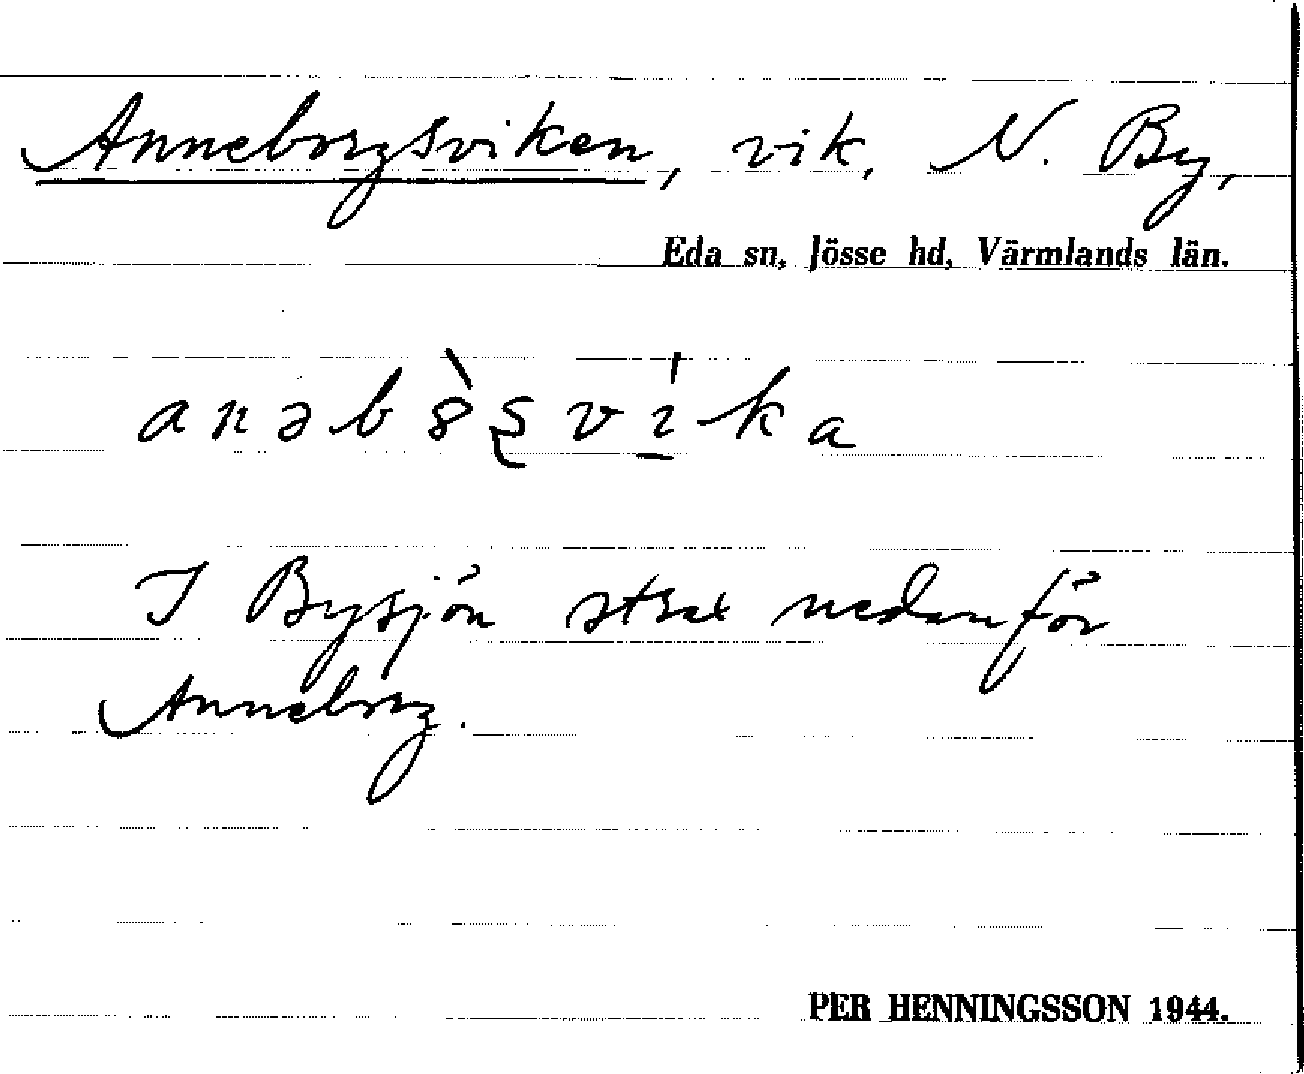 Anneborgsviken, vik, N. By,
Eda sn, Jösse hd, Värmlands län.
anəb8̀ʂví̱ka
I Bysjön strax nedanför
Anneborg.
PER HENNINGSSON 1944.